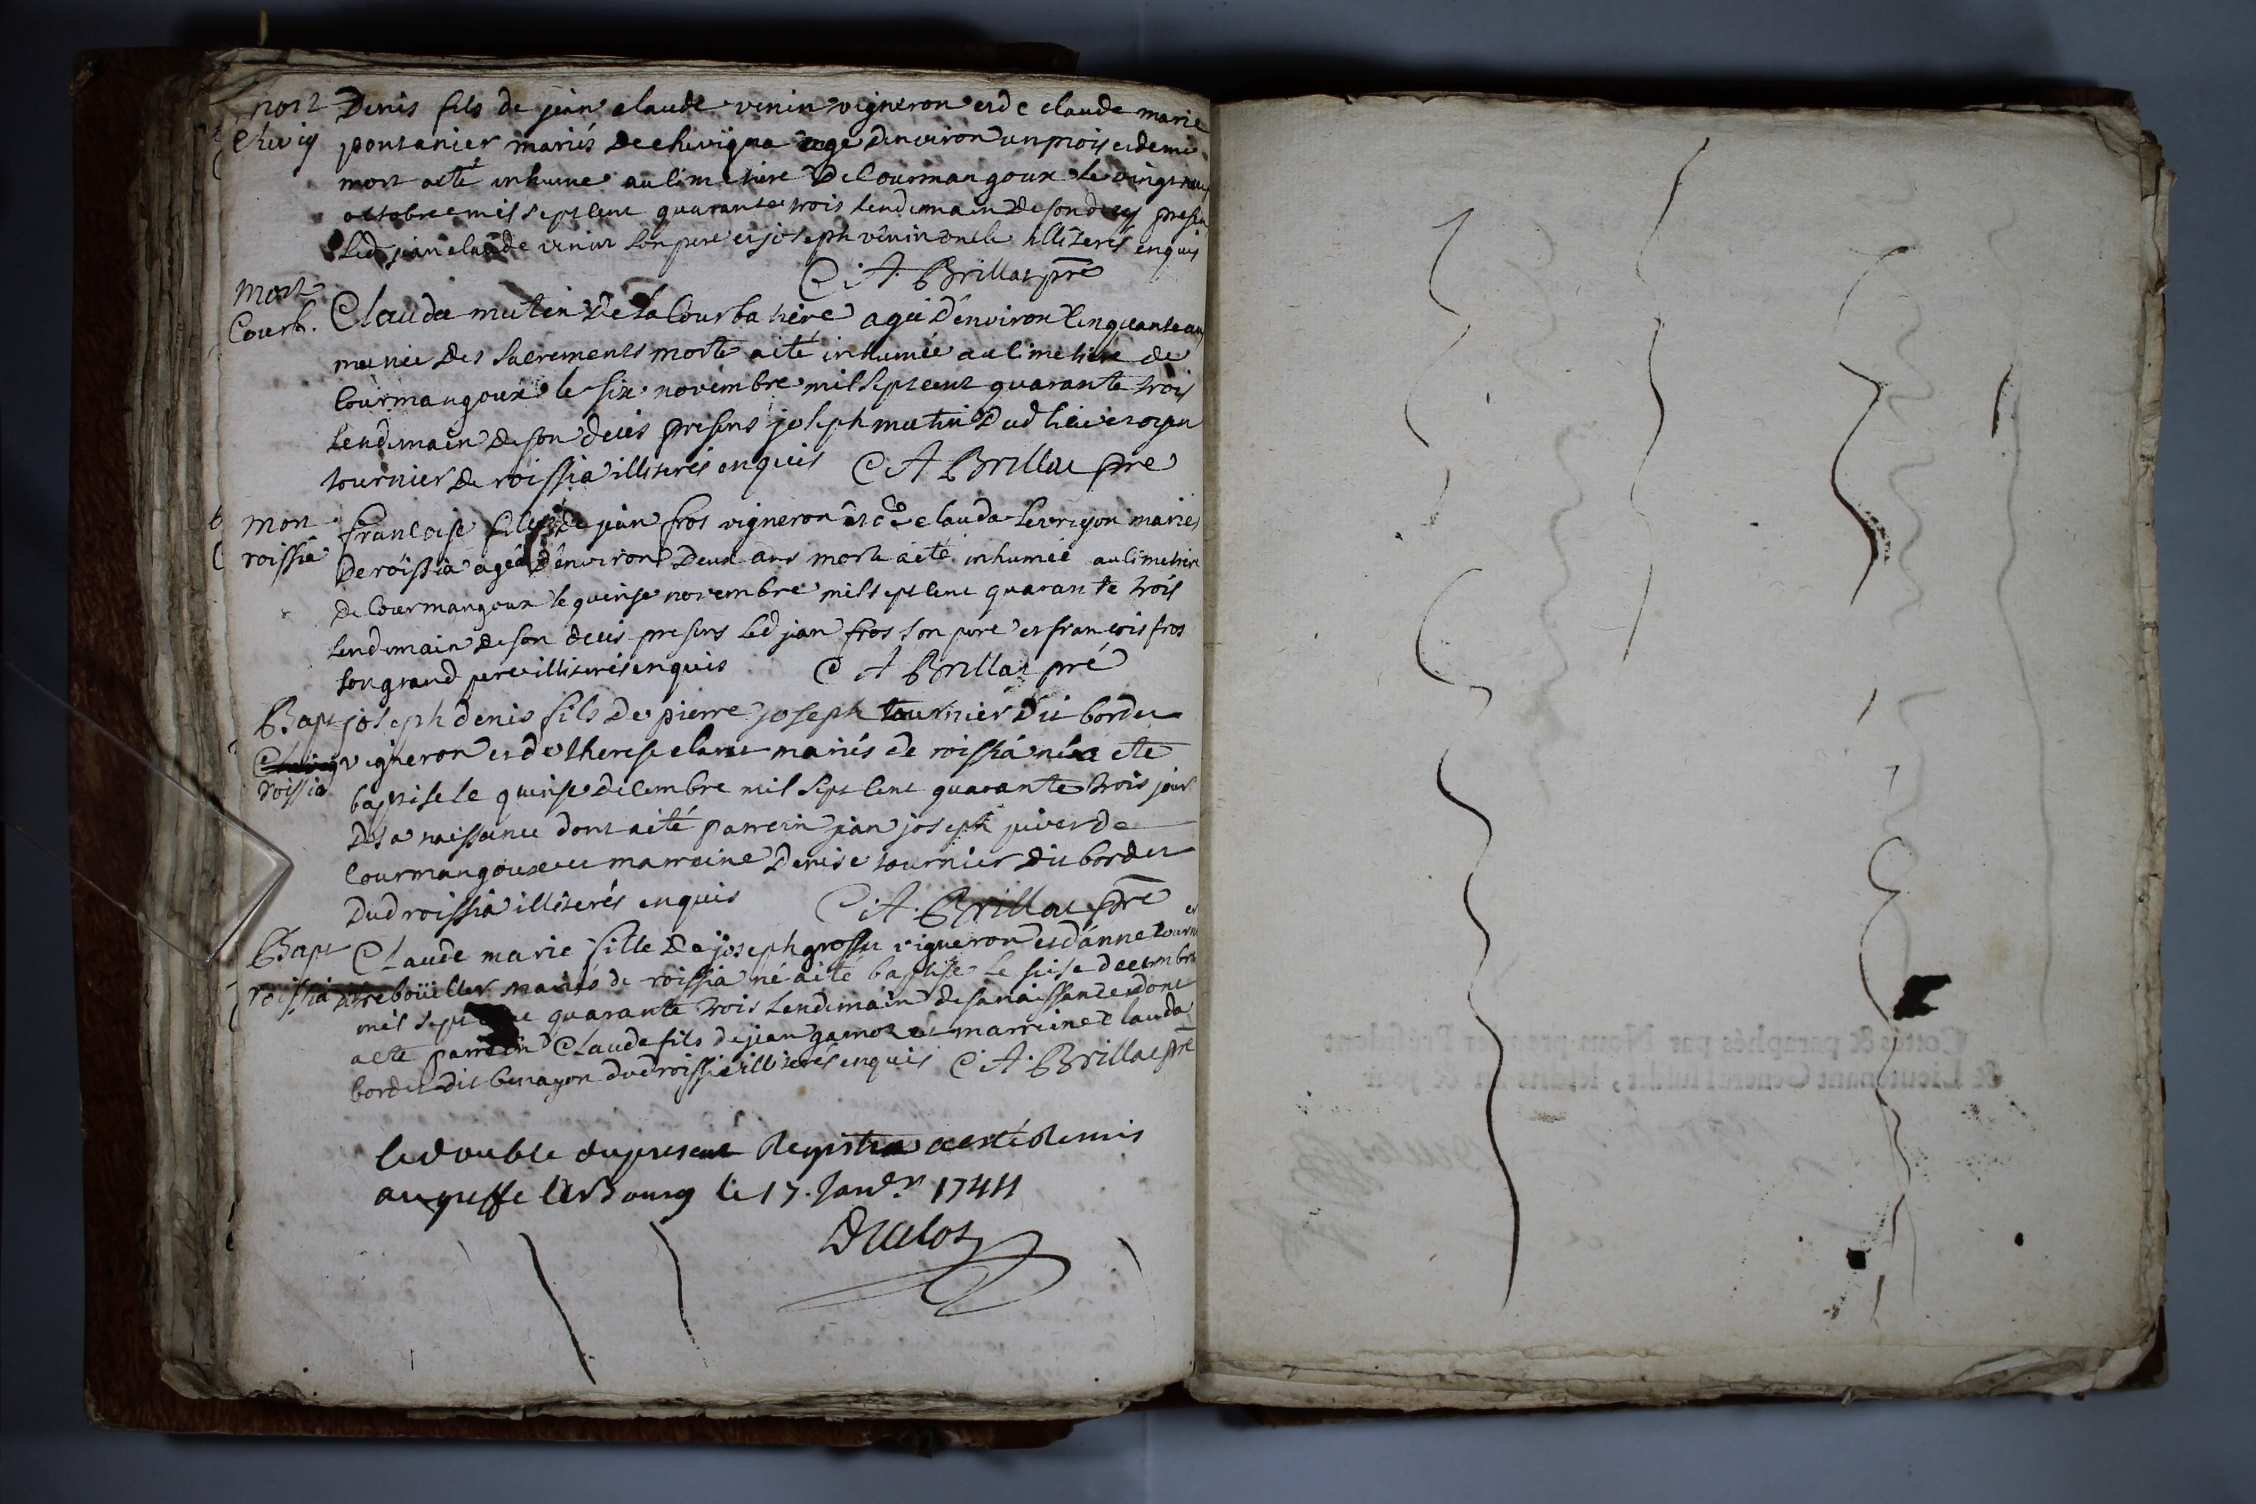 mort Denis fils de jean claude venin vigneron et de claude marie
Chevig pontanier mariés de chevigna age denviron un mois et demi
mort a eté inhumé au cimetiere de Courmangoux le vingt
octobre mil sept cent quarante trois lendemain de son deces presen
led jean claude venin son pere et joseph venin oncle illiterés enquis
C. A. Brillat pre
mort
Courb. Clauda mutin de la Courbatiere agée d'environ cinquante ans
munie des sacrements morte a eté inhumée au cimetiere de
Courmangoux le six novembre mil sept cent quarante trois
lendemain de son deces presens joseph mutin dud lieu et
tournier de roissia illiterés enquis C A Brillat pre
mort francoise fille de jean fros vigneron et de clauda maries
roissia de roissia agée d'environ deux ans morte a eté inhumée au cimetiere
de Courmangoux le quinse novembre mil sept cent quarante trois
lendemain de son deces presens led jean fros son pere et francois fros
son grand pere illiterés enquis C A Brillat pre
Bapt joseph denis fils de pierre joseph tournier dit bordet
vigneron et de therese mariés de roissia né a ete
roissia baptisé le quinse decembre mil sept cent quarante trois jour
de sa naissance dont a eté parrein jean joseph de
Courmangoux et marreine Denise tournier dit bordet
dud roissia illiterés enquis C. A. Brillat pre
Bapt Claude marie fille de joseph vigneron et d'anne tournier
roissia mariés de roissia né a eté baptisé le seise decembre
mil sept cent quarante trois lendemain de sa naissance dont
a eté parrein Claude fils de jean et marreine Clauda
bordet dit dud roissia illiterés enquis C. A. Brillat pre
le double du present Registre a esté remis
au greffe de Bourg le 17. Janer 1744
Cottés & paraphés par Nous premier Président
& Lieutenant General